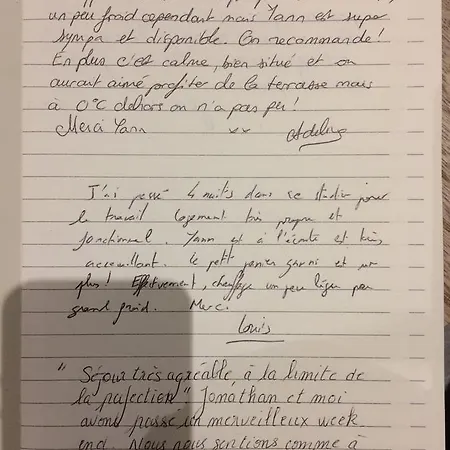 un peu froid cependant mais Yann est super
sympa et disponible. On recommande!
En plus c'est calme, bien situé et on
aurait aimé profiter de la terrasse mais
à 0°C dehors on n'a pas pu!
Merci Yann xx Adeline
J'ai passé 4 nuits dans ce studio pour
le travail logement très propre et
fonctionnel. Yann est à l'écoute et très
accueillant. Le petit panier garni est un
plus! Effectivement, chauffage un peu léger par
grand froid. Merci.
Louis
"Séjour très agréable, à la limite de
la pefection" Jonathan et moi
avons passé un merveilleux week
end. Nous nous sentions comme à